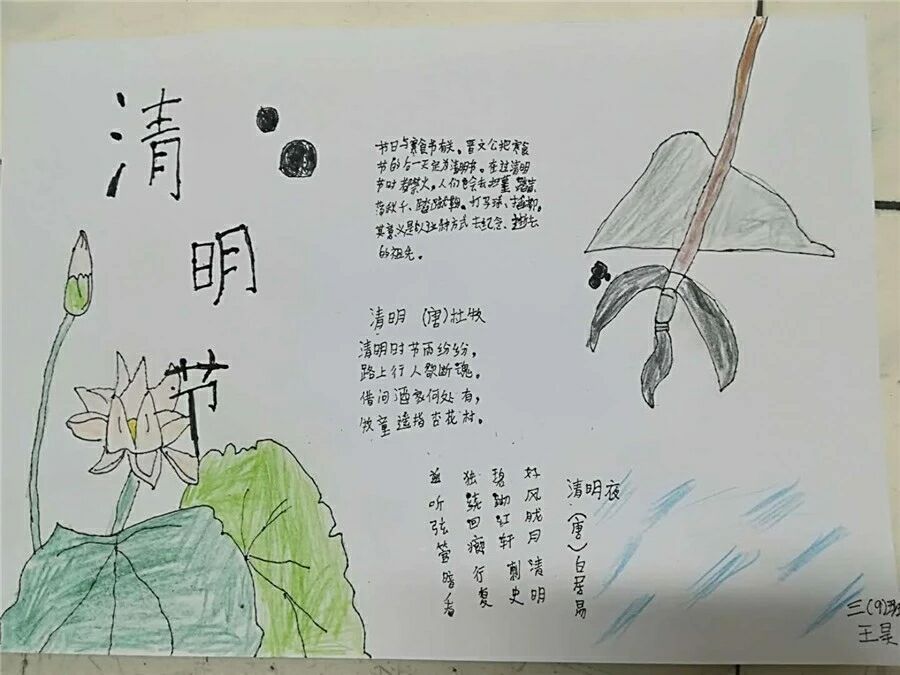 清明节
节日与寒食节有关。晋文公把寒食
节的后一天定为清明节。在过清明
节时者禁火。人们也会去扫墓、踏青、
荡秋千、踏蹴鞠。打马球、插柳。
其意义是以这种方式去纪念、逝去
的祖先。
清明 (唐)杜牧
清明时节雨纷纷,
路上行人欲断魂。
借问酒家何处有,
牧童遥指杏花村。
清明夜 (唐)白居易
好风胧月清明
碧砌红轩刺史
独绕回行复
听弦管暗看
三(9)班
王昊